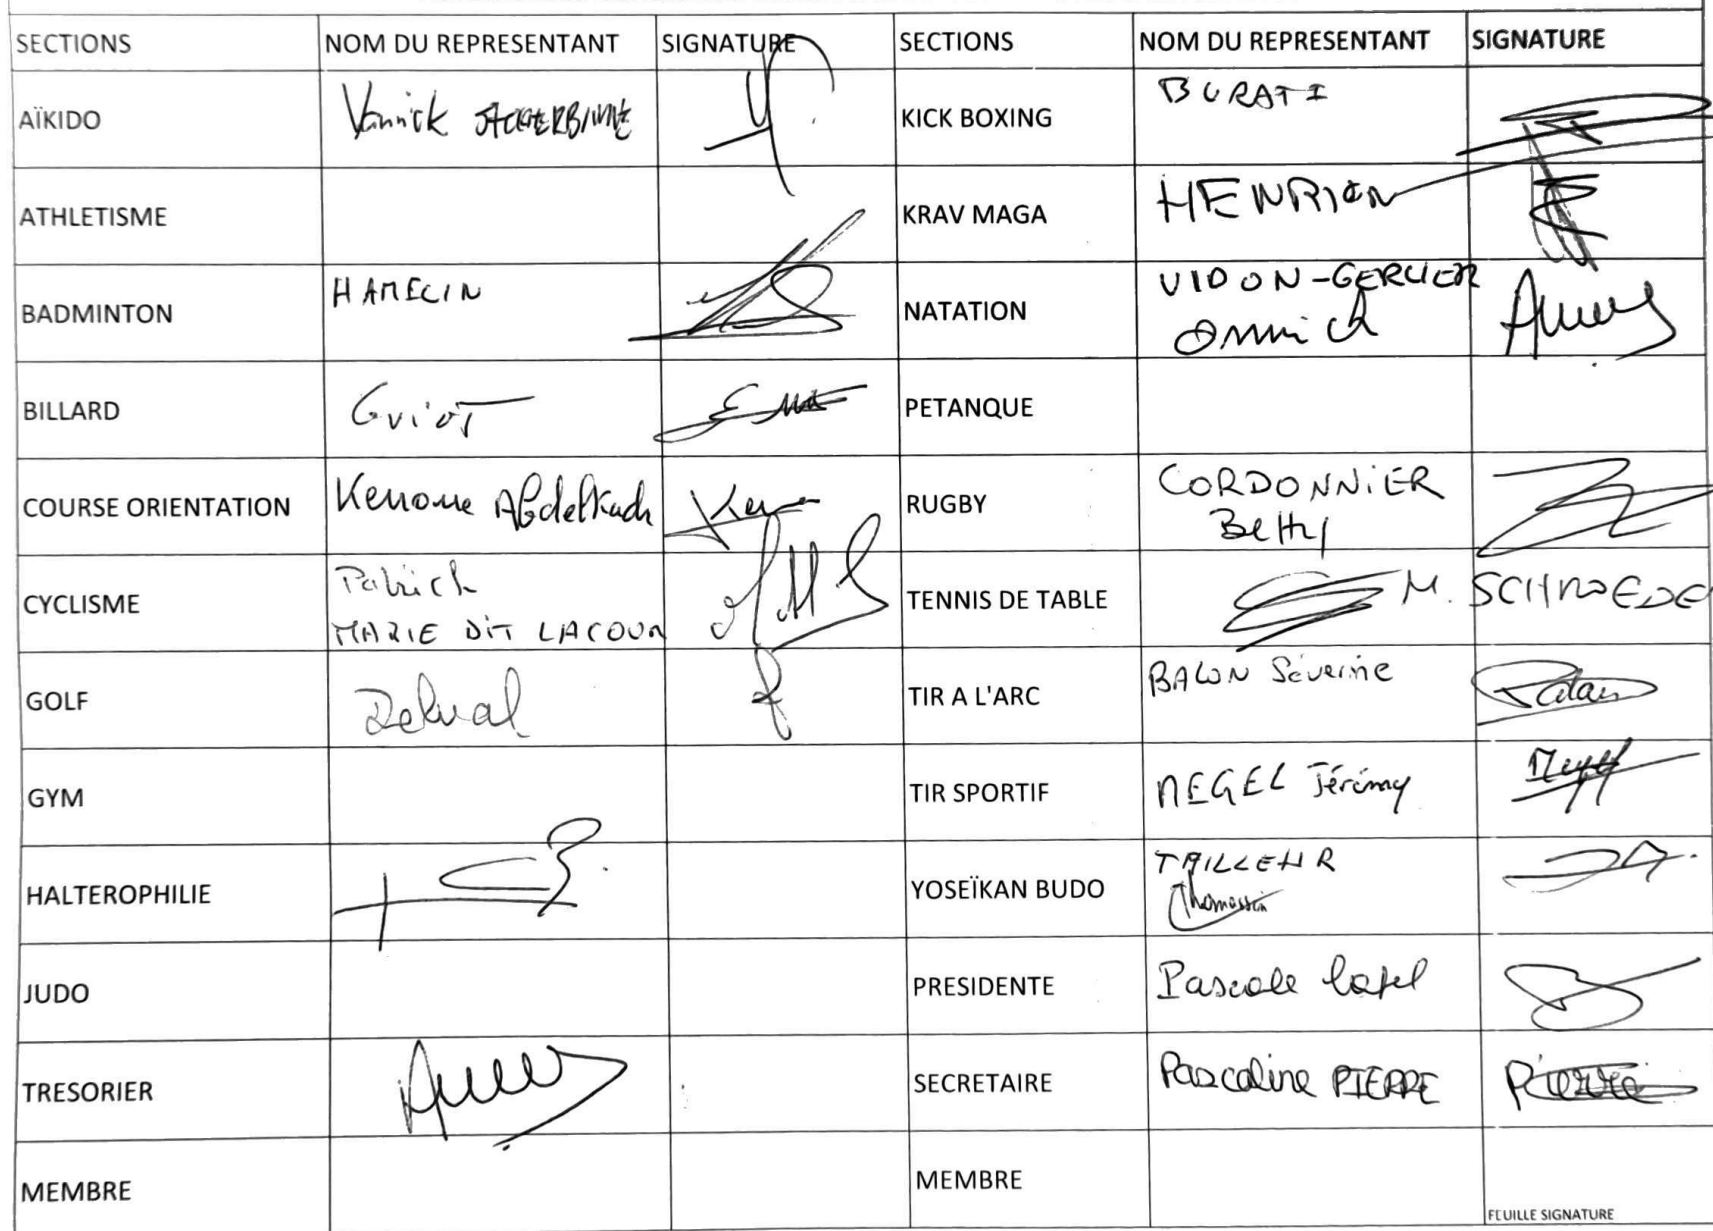 SECTIONS NOM DU REPRESENTANT SIGNATURE SECTIONS NOM DU REPRESENTANT SIGNATURE
AÏKIDO Yannick KICK BOXING BURATI
ATHLETISME KRAV MAGA HENRION
BADMINTON HAMELIN NATATION VIDON-GERLIER
Annick
BILLARD GuioT PETANQUE
COURSE ORIENTATION RUGBY CORDONNiER
Betty
CYCLISME Patrick
MARIE DiT LACOUR TENNIS DE TABLE M. SCHROEDE
GOLF Delval TIR A L'ARC BALON Séverine
GYM TIR SPORTIF NEGEL Jérémy
HALTEROPHILIE YOSEÏKAN BUDO TAILLEUR
Thomassin
JUDO PRESIDENTE Pascale
TRESORIER SECRETAIRE Pascaline PIERRE Pierre
MEMBRE MEMBRE
FEUILLE SIGNATURE